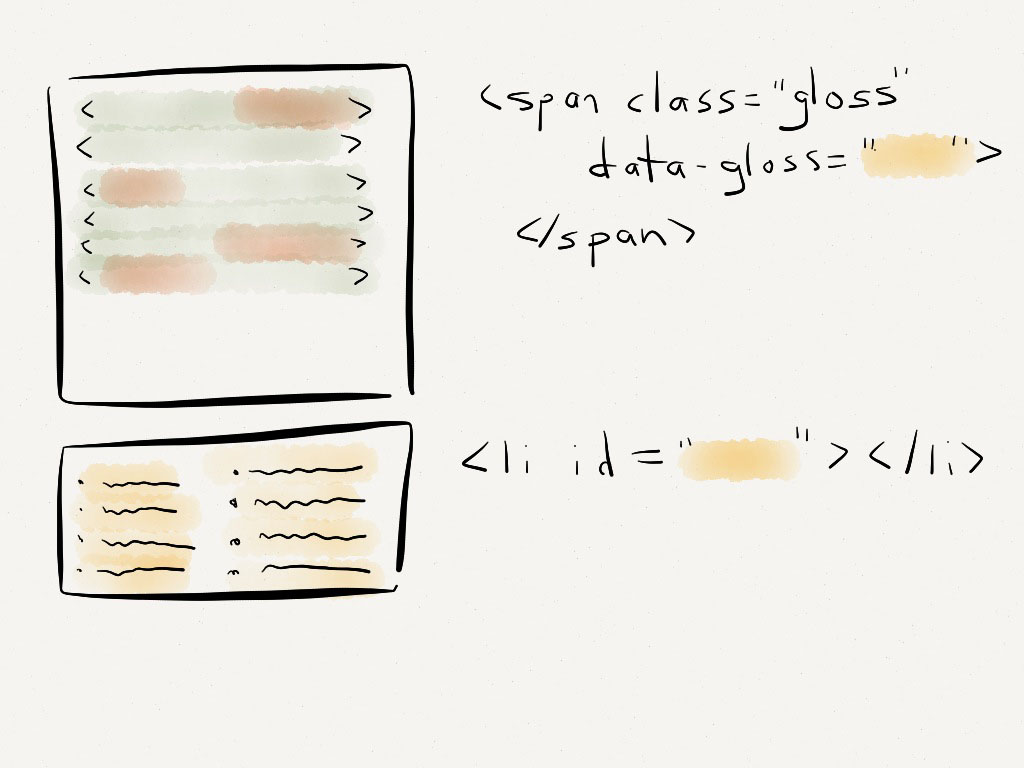 <span class="gloss"
data-gloss="">
</span>
<li id=""></li>